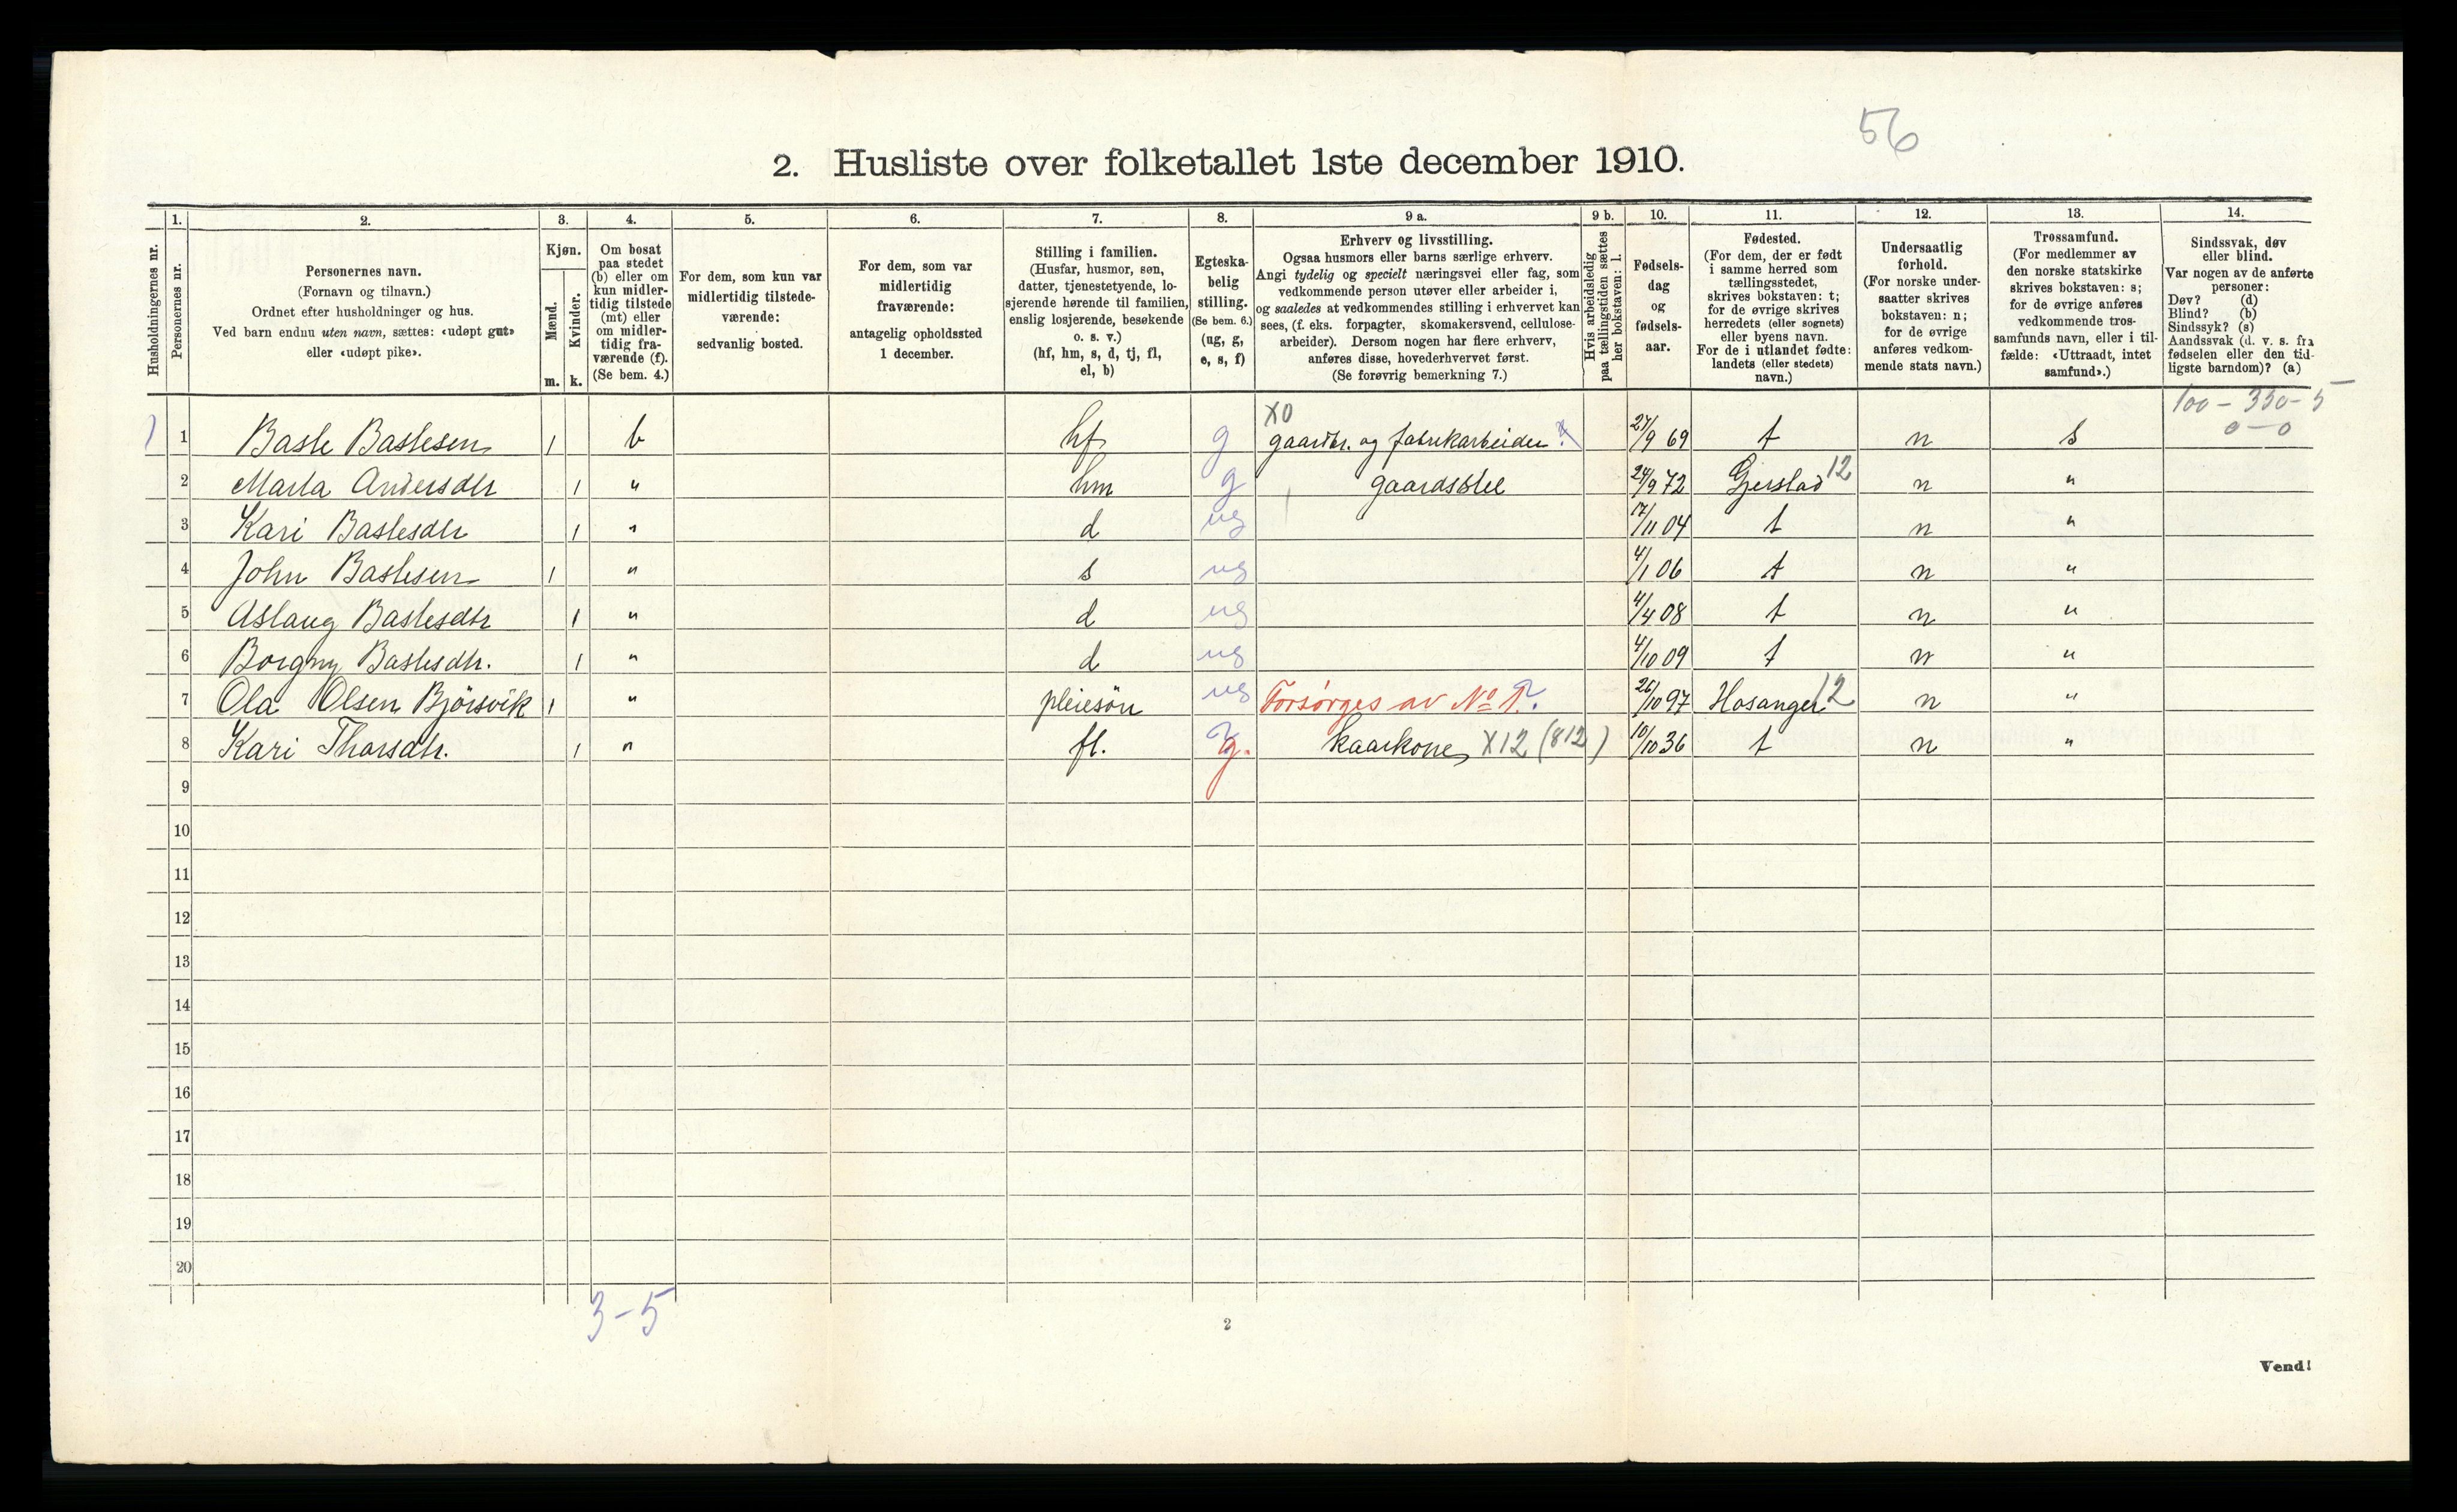 56
2. Husliste over folketallet 1ste december 1910.
Husholdningernes nr.
1. Personernes nr.
2. Personernes navn.
(Fornavn og tilnavn.)
Ordnet efter husholdninger og hus.
Ved barn endnu uten navn, sættes: «udøpt gut»
eller «udøpt pike».
3. Kjøn.
Mænd. Kvinder.
m. k.
4. Om bosat
paa stedet
(b) eller om
kun midler-
tidig tilstede
(mt) eller
om midler-
tidig fra-
værende (f).
(Se bem. 4.)
5. For dem, som kun var
midlertidig tilstede-
værende:
sedvanlig bosted.
6. For dem, som var
midlertidig
fraværende:
antagelig opholdssted
1 december.
7. Stilling i familien.
(Husfar, husmor, søn,
datter, tjenestetyende, lo-
sjerende hørende til familien,
enslig losjerende, besøkende
o. s. v.)
(hf, hm, s, d, tj, fl,
el, b)
8. Egteska-
belig
stilling.
(Se bem. 6.)
(ug, g,
e, s, f)
9 a. Erhverv og livsstilling.
Ogsaa husmors eller barns særlige erhverv.
Angi tydelig og specielt næringsvei eller fag, som
vedkommende person utøver eller arbeider i,
og saaledes at vedkommendes stilling i erhvervet kan
sees, (f. eks. forpagter, skomakersvend, cellulose-
arbeider). Dersom nogen har flere erhverv,
anføres disse, hovederhvervet først.
(Se forøvrig bemerkning 7.)
9 b. Hvis arbeidsledig
paa tællingstiden sættes
her bokstaven: l.
10. Fødsels-
dag
og
fødsels-
aar.
11. Fødested.
(For dem, der er født
i samme herred som
tællingsstedet,
skrives bokstaven: t;
for de øvrige skrives
herredets (eller sognets)
eller byens navn.
For de i utlandet fødte:
landets (eller stedets)
navn.)
12. Undersaatlig
forhold.
(For norske under-
saatter skrives
bokstaven: n;
for de øvrige
anføres vedkom-
mende stats navn.)
13. Trossamfund.
(For medlemmer av
den norske statskirke
skrives bokstaven: s;
for de øvrige anføres
vedkommende tros-
samfunds navn, eller i til-
fælde: «Uttraadt, intet
samfund».)
14. Sindssvak, døv
eller blind.
Var nogen av de anførte
personer:
Døv? (d)
Blind? (b)
Sindssyk? (s)
Aandssvak (d. v. s. fra
fødselen eller den tid-
ligste barndom)? (a)
X0 100 - 350 - 5
0 - 0
1 1 Basle Baslesen 1 b hf g gaardbr. og fabrikarbeider 27/9 69 t n s
2 Marta Andersdtr 1 " hm g gaardsstel 24/9 72 Gjerstad 12 n "
3 Kari Baslesdtr 1 " d ug 17/11 04 t n "
4 John Baslesen 1 " s ug 4/1 06 t n "
5 Aslaug Baslesdtr 1 " d ug 4/4 08 t n "
6 Borgny Baslesdtr. 1 " d ug 4/10 09 t n "
7 Ola Olsen Bjørsvik 1 " pleiesøn ug Forsørges av No 1. 26/10 97 Hosanger 12 n "
8 Kari Thorsdtr. 1 " fl. g. kaarkone X12 (812) 10/10 36 t n "
9
10
11
12
13
14
15
16
17
18
19
20
3-5
2
Vend!